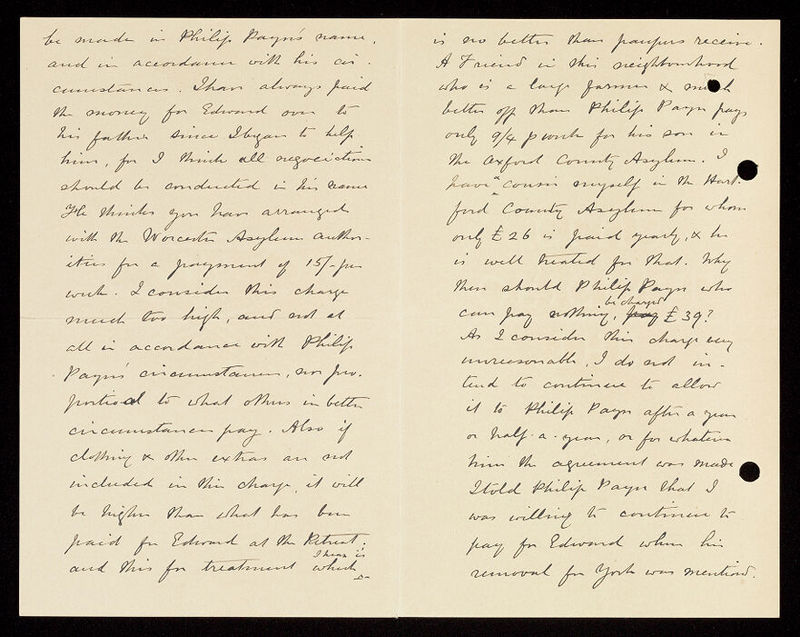 be made in Philip Payn's name,
and in accordance with his cir-
cumstances. I have always paid
the money for Edward over to
his father since I began to help
him, for I think all negociations
should be conducted in his name
He thinks you have arranged
with the Worcester Asylum author-
ities for a payment of 15/- per
week. I consider this charge
much too high, and not at
all in accordance with Philip
Payn's circumstances, nor pro-
portioal to what others in better
circumstances pay. Also if
clothing & other extras are not
included in this charge, it will
be higher than what has been
paid for Edward at the Retreat.
and this for treatment which I hear is
is no better than paupers receive.
A Friend in this neighbourhood
who is a large farmer & much
better off than Philip Payn pays
only 9/4 p week for his son in
the Oxford County Asylum. I
have a cousin myself in the Hert-
ford County Asylum for whom
only £26 is paid yearly, & he
is well treated for that. Why
then should Philip Payn who
can pay nothing, be charged pay £39?
As I consider this charge very
unreasonable, I do not in-
tend to continue to allow
it to Philip Payn after a year
or half-a-year, or for whatever
time the agreement was made
I told Philip Payn that I
was willing to continue to
pay for Edward when his
removal for York was mentioned.